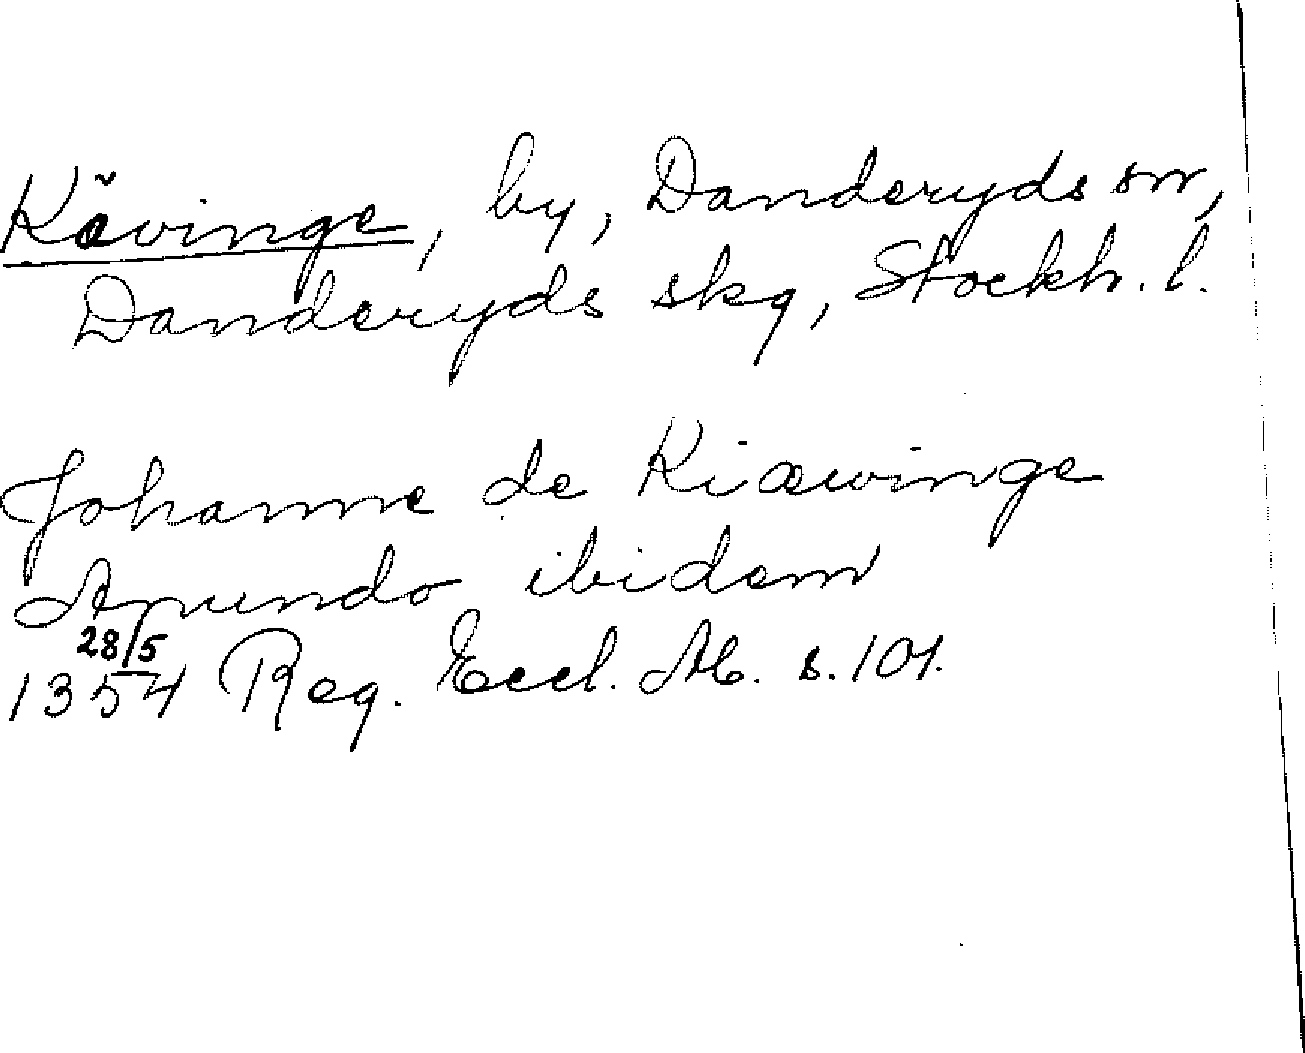 Kävinge, by, Danderyds sn,
Danderyds skg, Stockh. l.
Johanne de Kiæwinge
Anundo ibidem
28/5
1354 Reg. Eccl. Ab. s. 101.